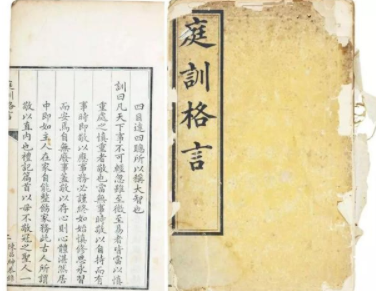 庭訓格言
四目達四聰所以擴大智也
訓曰凡天下事不可輕忽雖至微至易者皆當以慎
重處之慎重者敬也當無事時敬以自持而有
事時即敬以應事務必謹終如始慎修思永習
而安焉自無廢事蓋敬以存心則心體湛然居
中即如主人在家自能整飭家務此古人所謂
敬以直內也禮記篇首以毋不敬冠之聖人一
庭訓格言
二